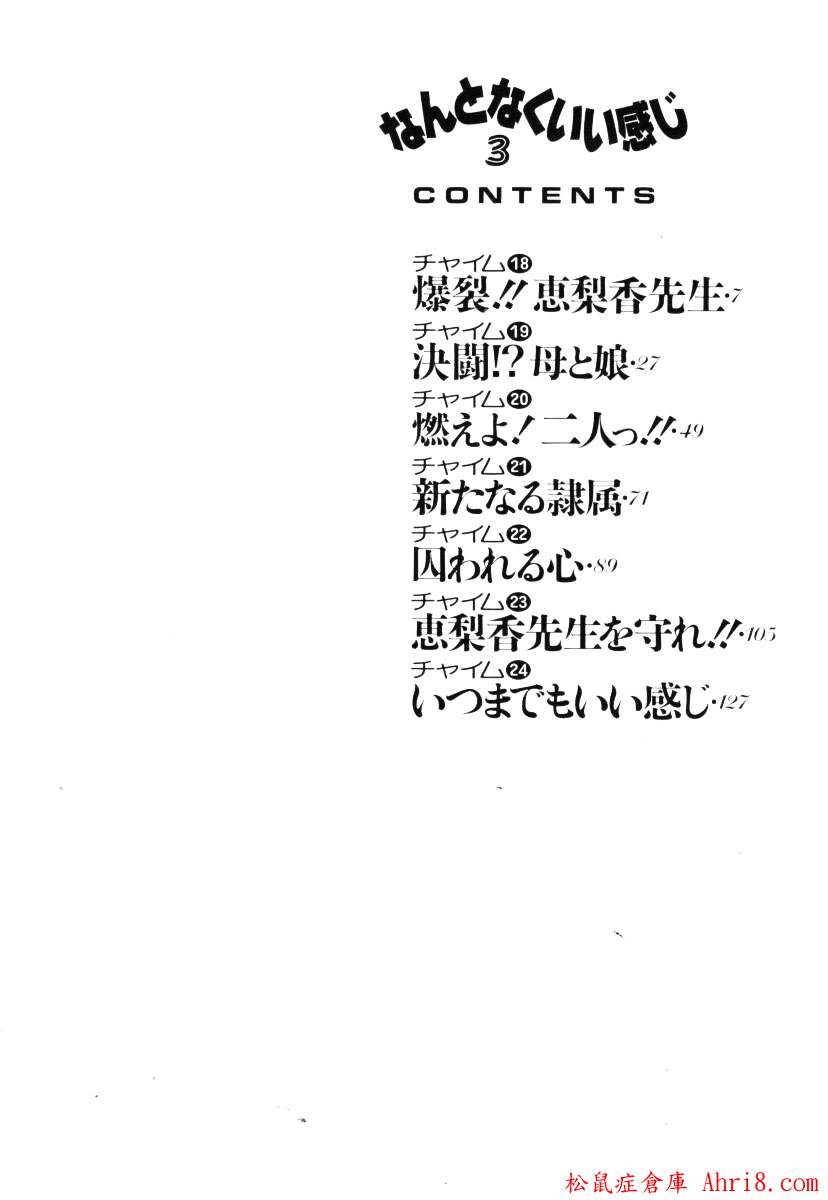 なんとなくいい感じ
3
CONTENTS
チャイム⓲
爆裂!! 恵梨香先生・7
チャイム⓳
決闘!? 母と娘・27
チャイム⓴
燃えよ! 二人っ!!・49
チャイム㉑
新たなる隷属・71
チャイム㉒
囚われる心・89
チャイム㉓
恵梨香先生を守れ!!・105
チャイム㉔
いつまでもいい感じ・127
松鼠症倉庫 Ahri8.com